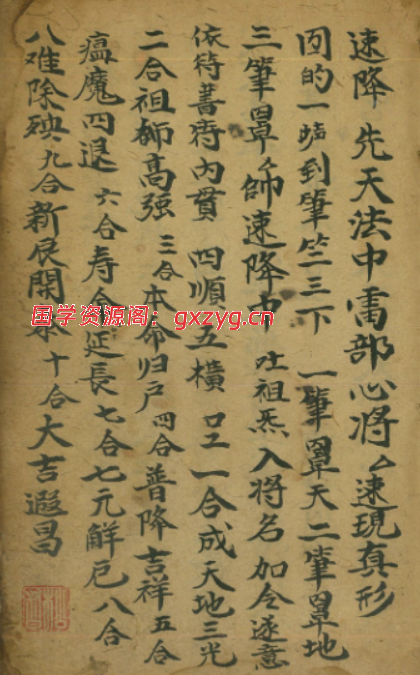 速降 先天法中雷部心将ㄙ速現真形
囙的一点到筆竺三下 一筆罩天二筆罩地
三筆罩ㄙ師速降中 吐祖炁入将名 加令遂意
依符書符内貫 四順五橫 口工 一合成天地三光
二合祖師高强 三合本命归户 四合普降吉祥 五合
瘟魔四退 六合寿命延長 七合七元觧厄 八合
八难除殃 九合新辰開泰 十合大吉遐昌
国学资源阁：gxzyg.cn